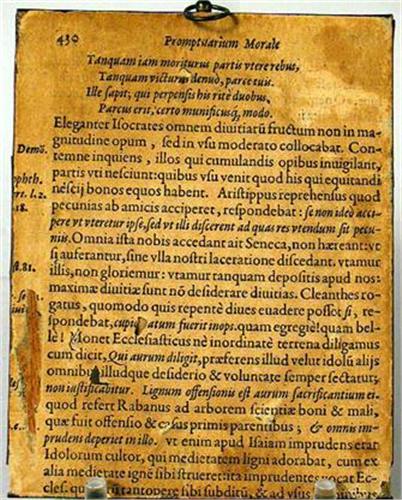 430 Promptuarium Morale
Tanquam iam moriturus partis vtere rebus,
Tanquam victurus denuò, parce tuis.
Ille sapit; qui perpensis his ritè duobus,
Parcus erit, certo munificusq; modo.
Eleganter Isocrates omnem diuitiarū fructum non in ma-
gnitudine opum, sed in vsu moderato collocabat. Con-
Demō.
temnē inquiens, illos qui cumulandis opibus inuigilant,
partis vti nesciunt: quibus vsu venit quod his qui equitandi
phth.
nescij bonos equos habent. Aristippus reprehensus quod
rr. l. 2.
pecunias ab amicis acciperet, respondebat: se non ideò acci-
18.
pere vt vteretur ipse, sed vt illi discerent ad quas res vtendum sit pecu-
niis. Omnia ista nobis accedant ait Seneca, non hæreant: vt
si auferantur, sine vlla nostri laceratione discedant. vtamur
st. 81.
illis, non gloriemur: vtamur tanquam depositis apud nos:
maximæ diuitiæ sunt nō desiderare diuitias. Cleanthes ro-
gatus, quomodo quis repente diues euadere posset si, re-
spondebat, cupiditatum fuerit inops. quam egregiè! quam bel-
lè! Monet Ecclesiasticus nè inordinatè terrena diligamus
cum dicit, Qui aurum diligit, præferens illud velut idolū alijs
omnibus illudque desiderio & voluntate semper sectatur,
non iustificabitur. Lignum offensionis est aurum sacrificantium ei
quod refert Rabanus ad arborem scientiæ boni & mali,
quæ fuit offensio & casus primis parentibus; & omnis im-
prudens deperiet in illo. vt enim apud Isaiam imprudens erat
Idolorum cultor, qui medietatem ligni adorabat, cum ex
alia medietate ignē sibi strueret ita imprudentes vocat Ec-
cles. qui tantopere sibi subditū, & ad vsus